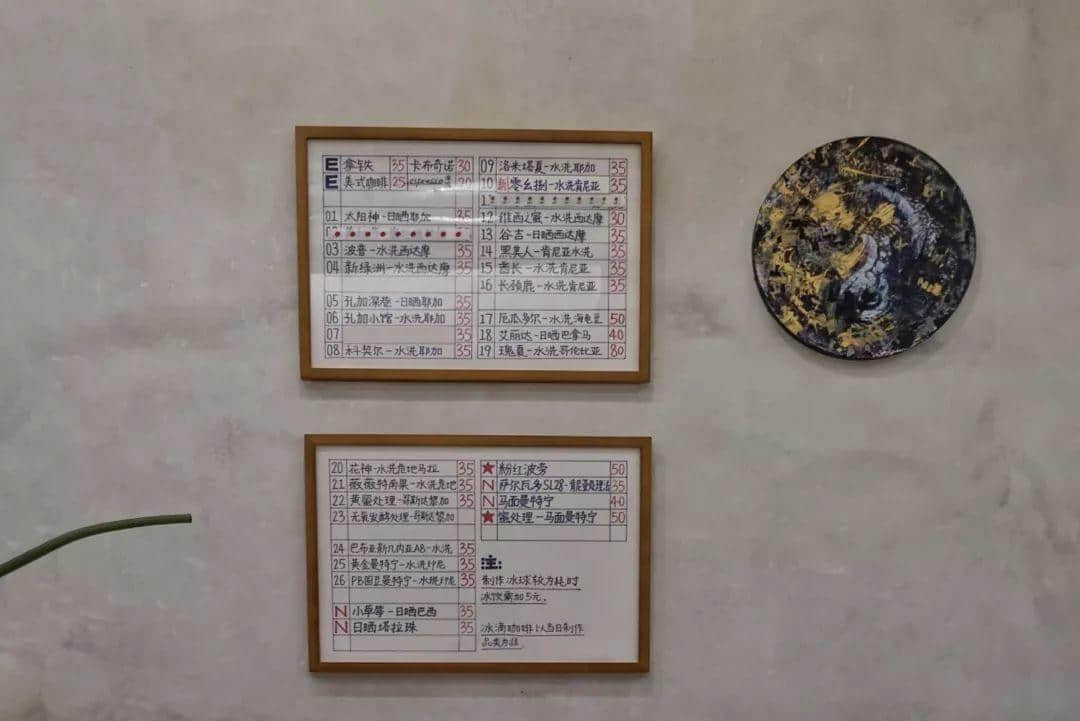 E 拿铁 35 卡布奇诺 30
E 美式咖啡 25 espresso 20
01 太阳神-日晒耶加 35
03 波音-水洗西达摩 35
04 新绿洲-水洗西达摩 35
05 孔加深巷-日晒耶加 35
06 孔加小馆-水洗耶加 35
07 35
08 科契尔-水洗耶加 35
09 洛米塔夏-水洗耶加 35
10 新零幺捌-水洗肯尼亚 35
12 维西之蜜-水洗西达摩 30
13 谷吉-日晒西达摩 35
14 黑美人-肯尼亚水洗 35
15 酋长-水洗肯尼亚 35
16 长颈鹿-水洗肯尼亚 35
17 厄瓜多尔-水洗海龟豆 50
18 艾丽达-日晒巴拿马 40
19 瑰夏-水洗哥伦比亚 80
20 花神-水洗危地马拉 35
21 薇薇特南果-水洗危地 35
22 黄蜜处理-哥斯达黎加 35
23 无氧发酵处理-哥斯达黎加
24 巴布亚新几内亚AB-水洗 35
25 黄金曼特宁-水洗印尼 35
26 PB圆豆曼特宁-水提印尼 35
N 小草莓-日晒巴西 35
N 日晒塔拉珠 35
★ 粉红波旁 50
N 萨尔瓦多SL28- 35
N 马面曼特宁 40
★ 蜜处理-马面曼特宁 50
注:
制作冰球较为耗时
冰饮需加5元.
冰滴咖啡以当日制作
品类为准.